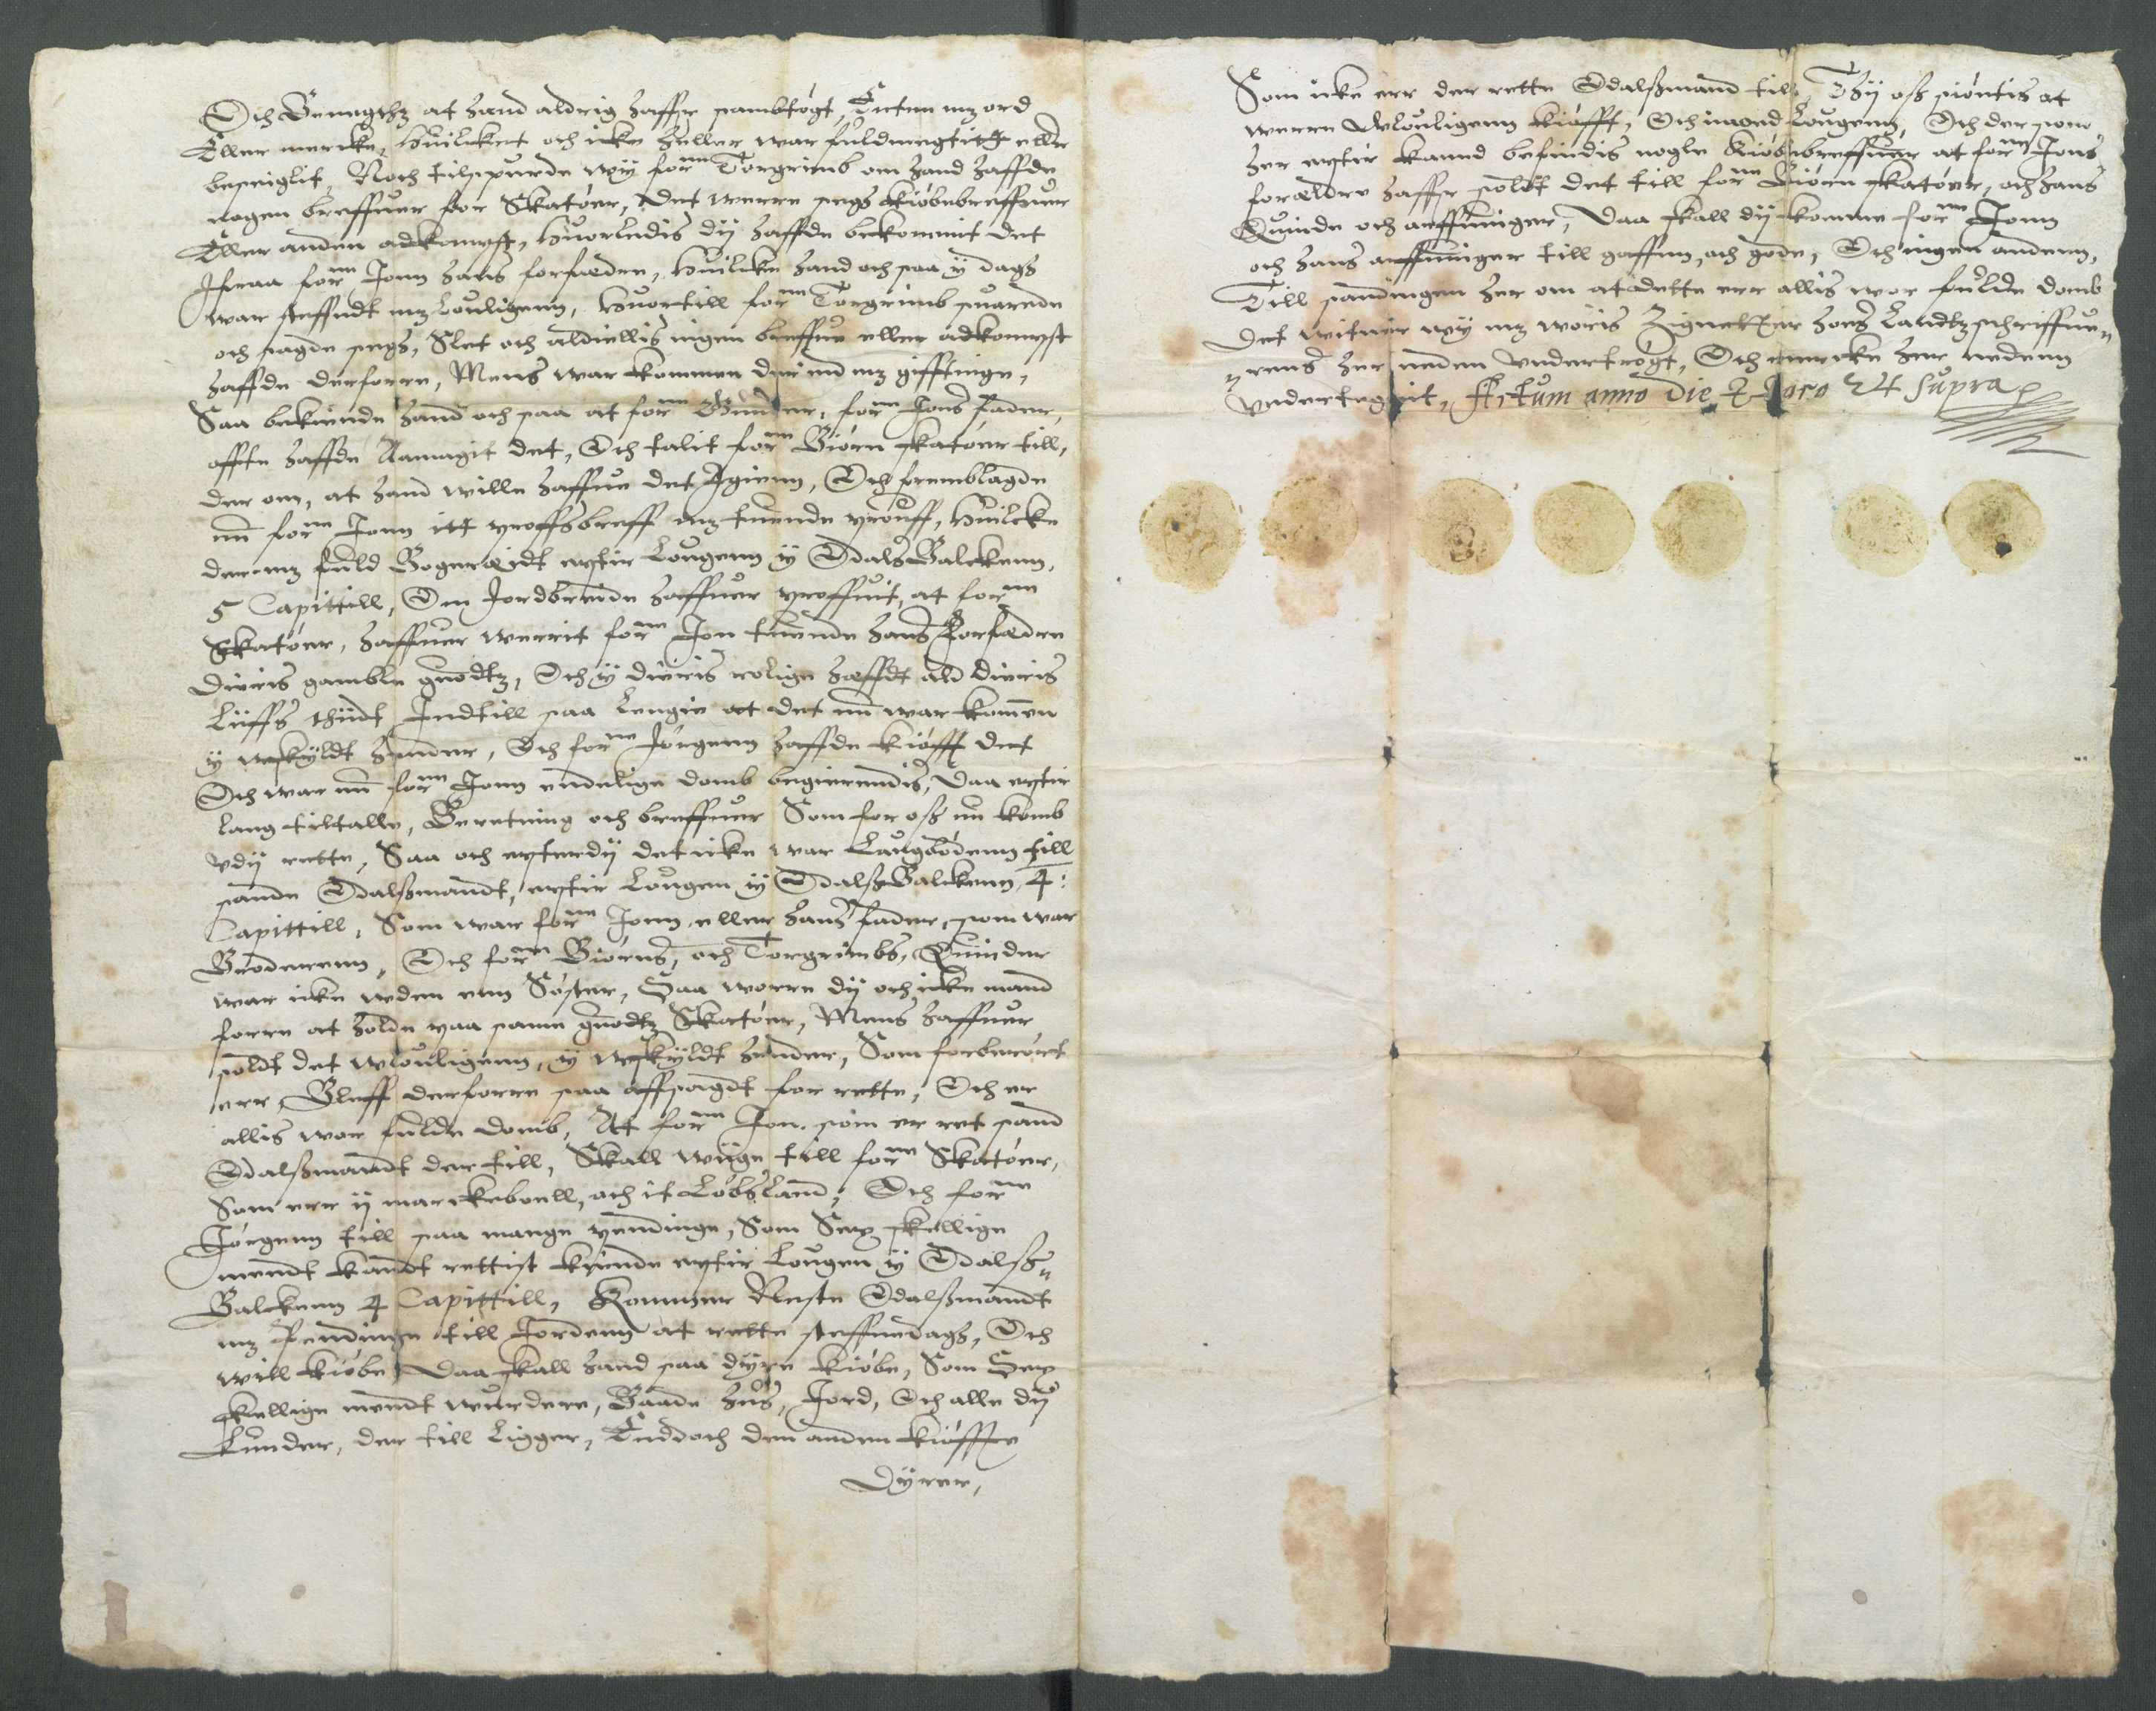 Och Benegthz at hand aldrig haffr sambtögt, Enten mz ord
Eller mercke, Huilcket och icke heller war fuldmegtigt eller
beseiglit, Noch tilspurde wÿ forne Torgrimb om hand haffde
nogen breffuer for Skatöer, det werre segs kiöbebreffuer
Eller anden adkompst, Huorledis dÿ haffde bekommit det
Ifraa forne Jonn hans forfædre, Huilcke hand och saa ÿ dags
war steffndt mz louligenn, Huortill forne Torgrimb suarede
och sagde segs, Slet och aldiellis ingen breffue eller adkompst
haffde derforre, Mens war kommen der ind mz gifftinge,
Saa bekiende hand och saa at forne Gunder, forne Jons fader,
offte haffde Aamagit det, Och talit forne Biörn skatöer till,
der om, at hand wille haffue det Igienn, Och fremblagde
nu forne Jonn itt proffsbreff mz tuende prouff, Huilcke
der mz fuld Bogereidt epter Lougenn ÿ Odals Balckenn,
5 Capittill, Om Jordbreide haffuer proffuit, at forne
Skatöer, haffuer werrit forne Jon tuende hans Forfædre
dieris gamble guodtz, Och ÿ dieris rolige haffdt ald dieris
Liiffs thiidt Indtill saa lenge at det nu war kommen
ÿ wskÿldt hender, Och forne Jörgenn haffde kiöfft det
Och war nu forne Jonn endelige domb begierendis, Daa epter
lang tiltalle, Beretning och breffuer Som for oss nu komb
udÿ rette, Saa och epterdÿ det icke war Laugbödenn till
sande Odalssmandt, epter Lougen ÿ Odalss Balckenn 4:
Capittill, Som war forne Jonn eller hans fader, som war
Broderenn, Och forne Biörns, och Torgrimbs, Quinder
war icke uden enn Söster, Saa worre dÿ och icke mand
forre at holde paa samme guodtz Skatöer, Mens haffuer
soldt det wlouligenn, ÿ wskÿldt hender, Som forberört
err, Bleff derforre saa affsagdt for rette, Och er
allis wor fulde domb, At forne Jon. som er ret sand
Odalssmandt der till, Skall wiige till forne Skatöer,
Som err ij marckeboell, och it Löbsland, Och forne
Jörgenn till saa mange pendinge, Som Sex skellige
mendt kandt rettist kiende epter Lougen ÿ Odalss
Balckenn 4 Capittill, Kommer Neste Odalssmandt
mz Pendinge till Jordenn at rette steffnedags, Och
will kiöbe, Daa skall hand saa dÿre kiöbe, Som Sex
skellige mendt wurdere, Baade hus, Jord, Och alle dÿ
Lunder, der till ligger, Enddoch den anden kiöffte
Dÿrer,
Som icke err der rette Odalssmand till, Thÿ oss siöntis at
werre wlouligenn kiöfft, Och imoed Lougenn, Och der som
her epter kannd befindis nogle kiöbebreffuer at forne Jons
forældre haffr soldt det till forne Biörn skatöer, och hans
Quinde och arffuinger, Daa skall dÿ komme forne Jonn
och hans arffuinger till gaffn, och gode, Och ingen andenn,
Till sandingen her om at dette err allis wor fulde domb
det witner wÿ mz woris Zigneter hoes Landtz schriffue
rens her neden undertrögt, Och mercke her nedenn
undertegnit, Actum anno Die & Loco ut supra